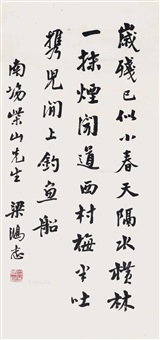 歲殘已似小春天隔水橫林
一抹煙聞道西村梅半吐
攜兒閒上釣魚船
南場柴山先生 梁鴻志